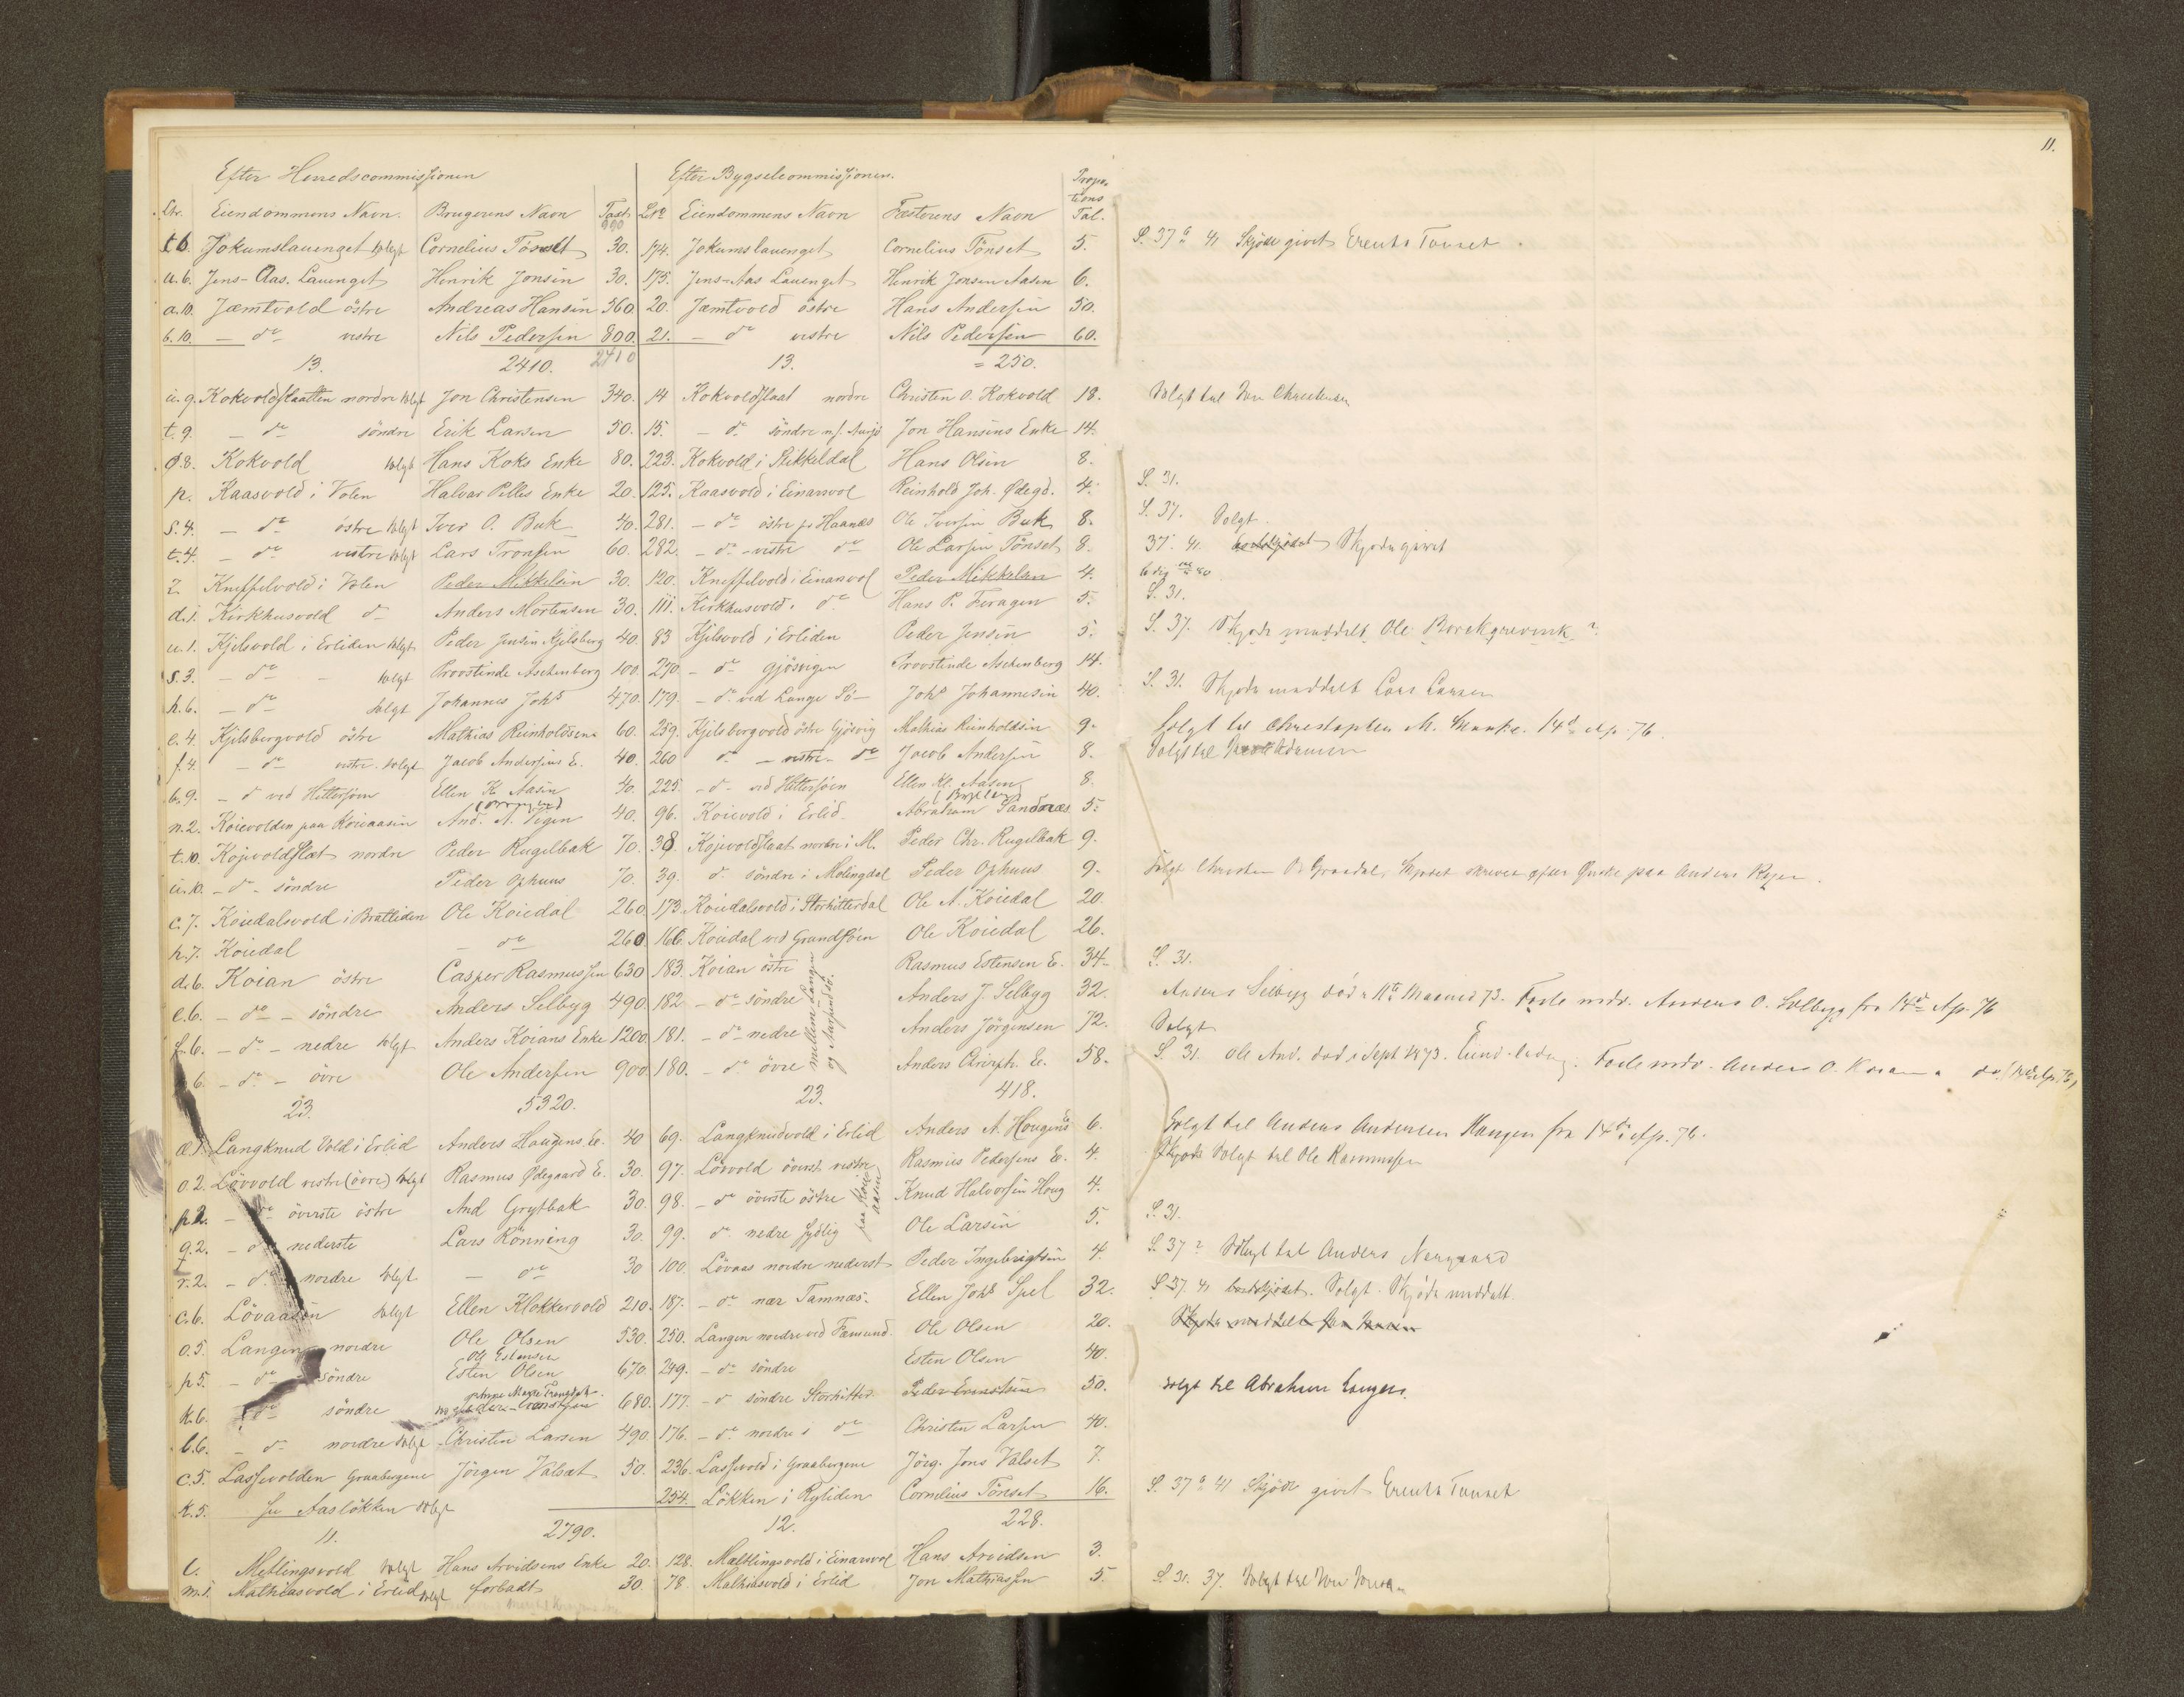 11.
Efter Herredscommissionen Efter Bygselcommissionen. Propor
tions
Ltr. Eiendommens Navn. Brugerens Navn Taxt. L.No Eiendommens Navn Fæsterens Navn Tal.
990
t.6. Jokumslauenget solgt Cornelius Tönset 30. 174. Jokumslauenget Cornelius Tönset 5. S. 37 & 41 Skjöde givet Tönset.
u.6. Jens-Aas. Lauenget Henrik Jonsen 30. 175. Jens-Aas Lauenget Henrik Jonsen Aasen 6.
a.10. Jæmtvold östre Andreas Hansen 360. 20. Jæmtvold östre Hans Andersen 50.
b.10. — do vestre Nils Pedersen 800. 21. — do vestre Nils Pedersen 60.
13. 2410. 2410 13. = 250.
u.9. Kokvoldslaatten nordre solgt Jon Christensen 340. 14 Kokvoldslaat nordre Christen O. Kokvold 18. Solgt til Jon Christensen
t.9. — do söndre Erik Larsen 50. 15. — do söndre Jon Hansens Enke 14.
8. Kokvold solgt Hans Koks Enke 80. 223. Kokvold i Stikkeldal Hans Olsen 8.
p. Kaasvold i Volen Halvar Pelles Enke 20. 125. Kaasvold i Einarsvol Reinhold Joh. Ødegd. 4. S. 31.
s.4. — do östre solgt Iver O. Buk 40. 281. — do östre Haanæs Ole Iversen Buk 8. S. 37. Solgt.
t.4. — do vestre solgt Lars Tronsen 60. 282. — do vestre do Ole Larsen Tönset 8. 37. 41. bortskjödet Skjöde givet
z. Kneppelvold i Volen Peder Mikkelsen 30. 120. Kneppelvold i Einarsvol Peder Mikkelsen 4.
d.1. Kirkhusvold do Anders Mortensen 30. 111. Kirkhusvold i do Hans P. Feragen 5. S. 31.
u.1. Kjelsvold i Erliden solgt Peder Jensen Kjelsberg 40. 83 Kjelsvold i Erliden Peder Jensen 5. S. 37. Skjöde meddelt Ole
s.3. — do — solgt Provstinde Aschenberg 100. 270 — do Gjösvigen Provstinde Aschenberg 14.
h.6. — do solgt Johannes Johs 470. 179. — do ved Lange Sö — Johs Johannesen 40. S. 31. Skjöde meddelt Lars Larsen
e.4. Kjelsbergvold östre Mathias Reinholdsen 60. 259. Kjelsbergvold östre Gjösvig Mathias Reinholdsen 9. Solgt til Christopher M. 14d Ap. 76.
f.4. — do vestre solgt Jacob Andersens E. 40. 260 do — vestre do Jacob Andersen 8. Solgt til
b.9. — do ved Hittersöen Ellen K. Aasen 40. 225. — do — ved Hittersöen Ellen Kl. Aasen 8.
n.2. Koievolden paa Koieaasen And. A. Vigen 40. 96. Koievold i Erlid. Abraham Sandnæs 5.
t.10. Kojevoldslæt nordre Peder Rugelbak 70. 38. Kojevoldslaat nordre i M. Peder Chr. Rugelbak 9.
u.10. — do — söndre Peder Ophuus 70. 39. do söndre i Molingdal Peder Ophuus 9. Solgt Christen Skjödet skrevet efter Önske paa Anders
c.7. Koiedalsvold i Bratliden Ole Koiedal 260. 173. Koiedalsvold i Storhitterdal Ole A. Koiedal 20.
h.7. Koiedal — do 260. 166. Koiedal ved Grundsöen Ole Koiedal 26.
d.6. Koian östre Casper Rasmussen 630 183. Koian östre Rasmus Estensen E. 34. S. 31.
e.6. — do — söndre Anders Selbyg 490. 182 — do söndre Anders J. Selbyg 32. Anders Selbyg död 11te 73. Anders O. Selbyg fra 14d Ap. 76
f.6. — do — nedre solgt Anders Koians Enke 1200. 181. — do nedre Anders Jörgensen 72. Solgt
6. — do — övre Ole Andersen 900. 180. — do övre Anders Christph. E. 58. S. 31. Ole And. död i Sept 1873. Anders O. Koian do (14d Ap. 76)
mellem Langen og Aursund sö.
23. 5320. 23. 418.
æ.1. Langknud Vold i Erlid Anders Haugens E. 40 69. Langknudvold i Erlid Anders A. Hougens 6. Solgt til Anders Andersen Haugen fra 14de Ap. 76.
o.2. Lövvold vestre (övre) solgt Rasmus Ødegaard E. 30. 97. Lövvold överst vestre Rasmus Pedersens E. 4. Skjöde Solgt til Ole Rasmussen
p.2. — do överste östre And Grytbak 30. 98. — do överste östre Knud Halvorsen Houg 4.
paa Koieaasen
q.2. — do nederste Lars Rönning 30. 99. do nedre sydlig Ole Larsen 5. S. 31.
r.2. — do nordre solgt — do 30 100. Lövaas nordre nederst Peder Ingebrigtsen 4. S. 37? Solgt til Anders
c.6. Lövaasen solgt Ellen Klokkervold 210. 187. — do nær Tamnæs. Ellen Johs Spel 32. S. 37. 41 bortskjödet. Solgt. Skjöde meddelt.
o.5. Langen nordre Ole Olsen 530. 250. Langen nordre ved Ole Olsen 20. Skjöde meddelt
Ole Estensen
p.5. — do söndre Esten Olsen 670. 249. — do söndre Esten Olsen 40.
k.6. do söndre 680. 177. — do söndre Storhitter Peder 50. Solgt til Abraham Langen.
l.6. — do nordre solgt Christen Larsen 490 176. — do nordre do Christen Larsen 40.
c.5. Lassevolden Graabergene Jörgen Valset 50. 236. Lassevold i Graabergene Jörg. Jons Valset 7.
254. Lökken i Ryliden Cornelius Tönset 16. S. 37 & 41 Skjöde givet Tönset
k.5. Se Aaslökken solgt
11. 2790. 12. 228.
l. Metlingsvold solgt Hans Arvidsens Enke 20. 128. Mætlingsvold i Einarsvol Hans Arvidsen 3.
m.1. Mathiasvold i Erlid solgt forladt 30. 78. Mathiasvold i Erlid Jon Mathiassen 5. S. 31. 37. Solgt til